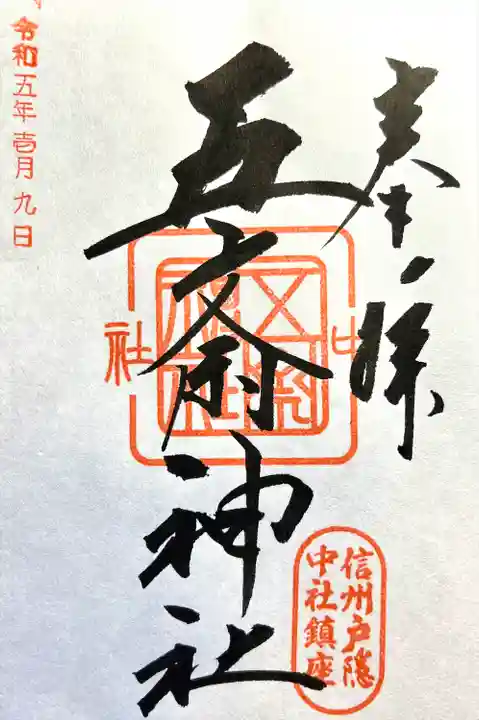 奉拝
五斎神社
中社
信州戸隠
中社鎮座
令和五年壱月九日